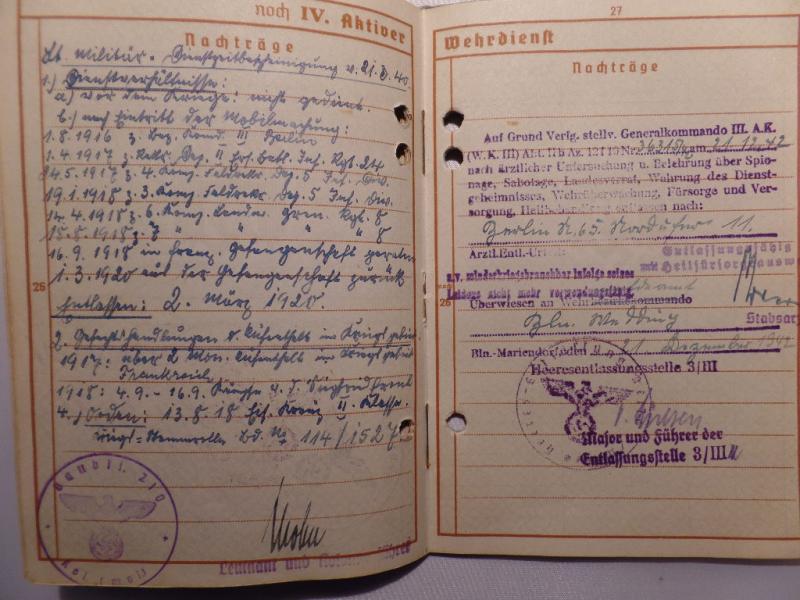 noch IV. Aktiver
Nachträge
Lt. Militär-Dienstzeitbescheinigung v. 21. 40.
1.) Dienstverhältnisse:
a) vor dem Kriege: nicht gedient.
b.) nach Eintritt der Mobilmachung:
1.8.1916 z. Bez. Kdo. III Berlin
1.4.1917 z. Rekr. Dep. II Ers. Batl. Inf. Rgt. 24
14.5.1917 z. 4. Komp. Feldrekr. Dep. 5 Inf. Div.
19.1.1918 z. 3. Komp. Feldrekr. Dep. 5 Inf. Div.
14.4.1918 z. 6. Komp. Gren. Rgt. 8
18.8.1918 z. 7 " " " " 8
16.9.1918 in franz. Gefangenschaft geraten
1.3.1920 aus der Gefangenschaft zurück
Entlassen: 2. März 1920.
2. Gefechtshandlungen u. Aufenthalt im Kriegsgebiet
1917: über 2 Mon. Aufenthalt im Kriegsgebiet
Frankreich
1918: 4.9. - 16.9. Kämpfe Siegfriedfront
4.) Orden: 13.8.18 Eis. Kreuz II. Klasse.
Kriegs-Stammrolle Bd. No 114/1527
26
Leutnant und
27
Wehrdienst
Nachträge
Auf Grund Verfg. stellv. Generalkommando III. A.K.
(W.K. III) Abt. IIb Az. 12 i 10 Nr. 36215 vom 21.12.42
nach ärztlicher Untersuchung u. Belehrung über Spio-
nage, Sabotage, Landesverrat, Wahrung des Dienst-
geheimnisses, Wehrüberwachung, Fürsorge und Ver-
sorgung, entlassen nach:
Berlin N. 65. Nordufer 11.
Ärztl. Entl.-Urteil:
Entlassungsfähig
z.V. minderkriegsbrauchbar infolge seines
Leidens nicht mehr verwendungsfähig.
26
Überwiesen an Wehrbezirkskommando
Stabsarzt
Bln. Wedding
Bln.-Mariendorf, den 21. Dezember 1942
Heeresentlassungsstelle 3/III
Major und Führer der
Entlassungsstelle 3/III